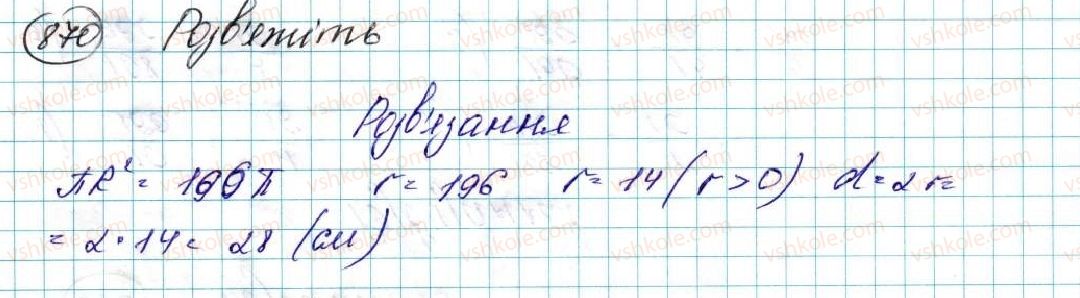 870 Розв'яжіть
Розв'язання
πR² = 196π r = 196 r = 14 (r > 0) d = 2r =
= 2 · 14 = 28 (см)
vshkole.com